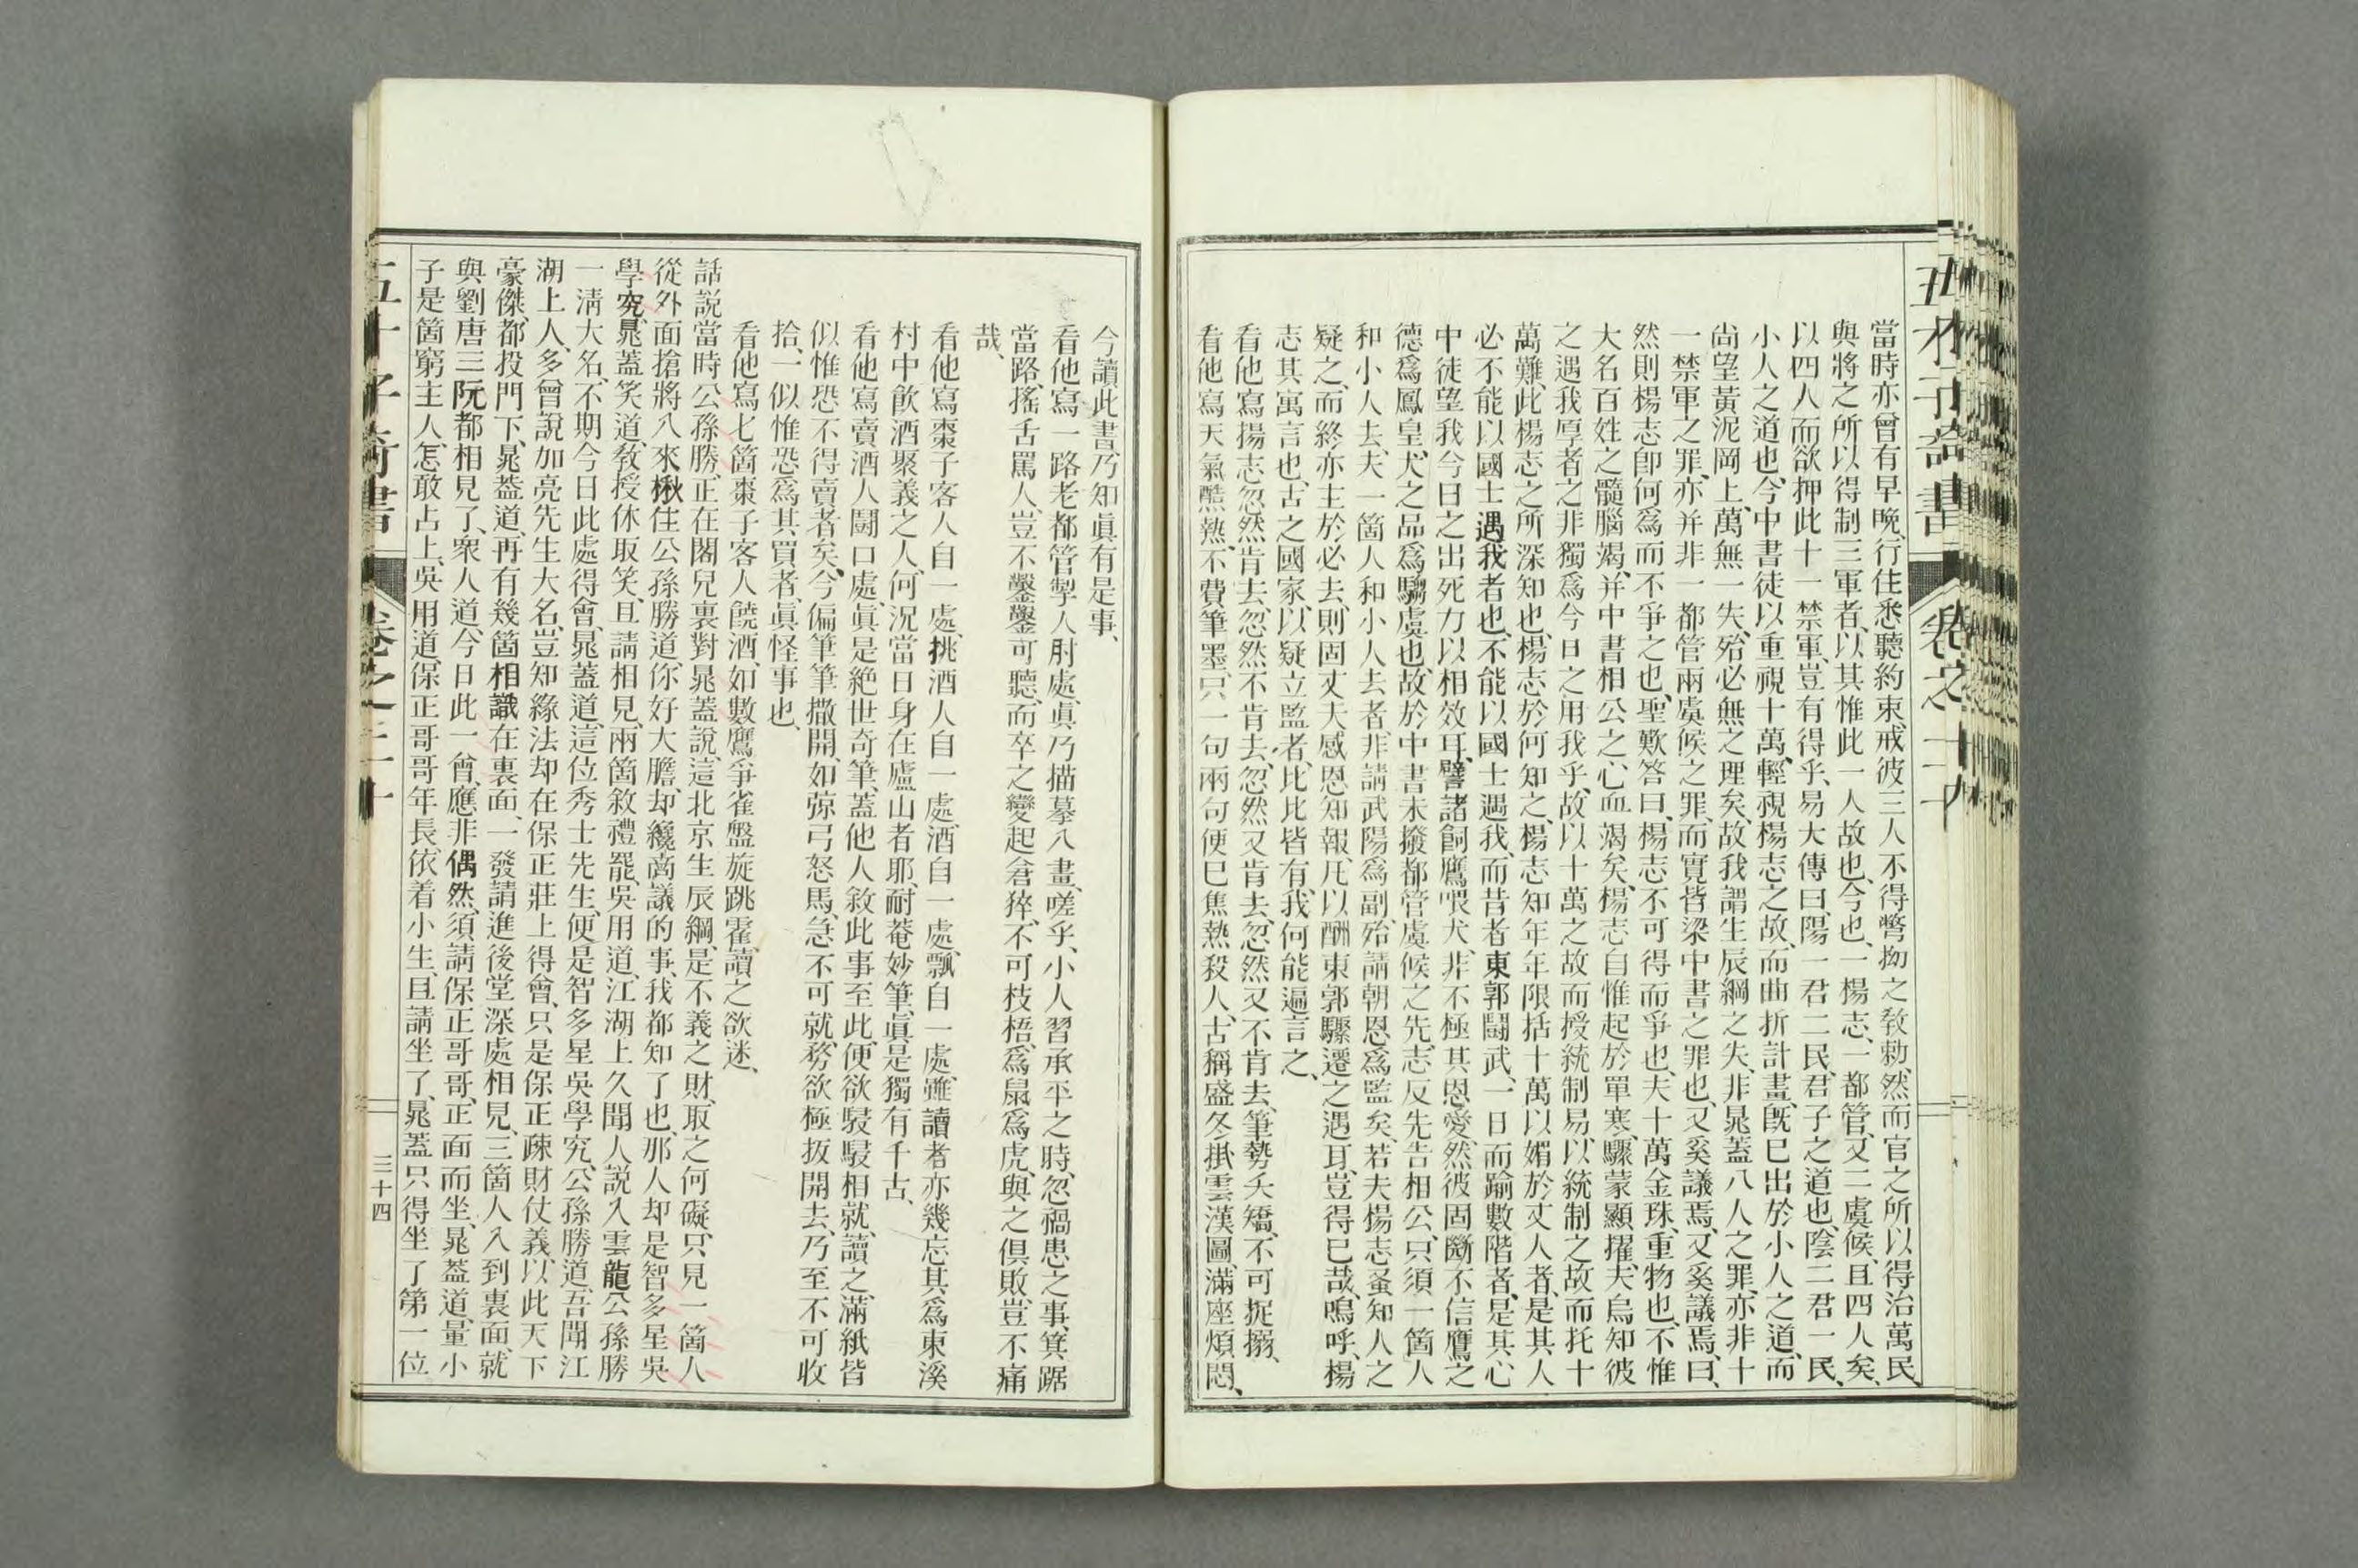 當時亦曾有早晚、行住悉聽約束、戒彼三人不得彆拗之敎勅、然而官之所以得治萬民、
與將之所以得制三軍者、以其惟此一人故也、今也、一楊志、一都管、又二虞候、且四人矣、
以四人而欲押此十一禁軍、豈有得乎、易大傳曰、陽一君二民、君子之道也、陰二君一民、
小人之道也、今中書徒以重視十萬、輕視楊志之故、而曲折計畫、旣已出於小人之道、而
尙望黃泥岡上、萬無一失、殆必無之理矣、故我謂生辰綱之失、非晁蓋八人之罪、亦非十
一禁軍之罪、亦并非一都管兩虞候之罪、而實皆梁中書之罪也、又奚議焉、又奚議焉、曰、
然則楊志卽何爲而不爭之也、聖歎答曰、楊志不可得而爭也、夫十萬金珠、重物也、不惟
大名百姓之髓腦竭、并中書相公之心血竭矣、楊志自惟起於單寒、驟蒙顯擢、夫烏知彼
之遇我厚者之非獨爲今日之用我乎、故以十萬之故而授統制易、以統制之故而托十
萬難、此楊志之所深知也、楊志於何知之、楊志知年年限括十萬以媚於丈人者、是其人
必不能以國士遇我者也、不能以國士遇我、而昔者東郭鬪武、一日而踰數階者、是其心
中徒望我今日之出死力以相效耳、譬諸飼鷹喂犬、非不極其恩愛、然彼固斷不信鷹之
德爲鳳皇、犬之品爲騶虞也、故於中書未撥都管虞候之先、志反先告相公、只須一箇人
和小人去、夫一箇人和小人去者、非請武陽爲副、殆請朝恩爲監矣、若夫楊志蚤知人之
疑之、而終亦主於必去、則固丈夫感恩知報、凡以酬東郭驟遷之遇耳、豈得已哉、嗚呼、楊
志其寓言也、古之國家、以疑立監者、比比皆有、我何能遍言之、
看他寫楊志忽然肯去、忽然不肯去、忽然又肯去、忽然又不肯去、筆勢夭矯、不可捉搦、
看他寫天氣酷熱、不費筆墨、只一句兩句便已焦熱殺人、古稱盛冬掛雲漢圖、滿座煩悶、
五才子奇書
卷之二十
今讀此書、乃知眞有是事、
看他寫一路老都管掣人肘處、眞乃描摹入畫、嗟乎、小人習承平之時、忽禍患之事、箕踞
當路、搖舌罵人、豈不鑿鑿可聽、而卒之變起倉猝、不可枝梧、爲鼠爲虎、與之俱敗、豈不痛
哉、
看他寫棗子客人自一處、挑酒人自一處、酒自一處、瓢自一處、雖讀者亦幾忘其爲東溪
村中飮酒聚義之人、何況當日身在廬山者耶、耐菴妙筆、眞是獨有千古、
看他寫賣酒人鬪口處、眞是絕世奇筆、蓋他人敘此事至此、便欲駸駸相就、讀之、滿紙皆
似惟恐不得賣者矣、今偏筆筆撒開、如弶弓怒馬、急不可就、務欲極扳開去、乃至不可收
拾、一似惟恐爲其買者、眞怪事也、
看他寫七箇棗子客人饒酒、如數鷹爭雀、盤旋跳霍、讀之欲迷、
話說當時公孫勝、正在閣兒裏對晁蓋說、這北京生辰綱、是不義之財、取之何礙、只見一箇人
從外面搶將入來、楸住公孫勝道、你好大膽、却纔商議的事、我都知了也、那人却是智多星吳
學究、晁蓋笑道、敎授休取笑、且請相見、兩箇敘禮罷、吳用道、江湖上久聞人說入雲龍公孫勝
一淸大名、不期今日此處得會、晁蓋道、這位秀士先生、便是智多星吳學究、公孫勝道、吾聞江
湖上人、多曾說加亮先生大名、豈知緣法却在保正莊上得會、只是保正疎財仗義、以此天下
豪傑、都投門下、晁葢道、再有幾箇相識在裏面、一發請進後堂深處相見、三箇人入到裏面、就
與劉唐三阮都相見了、衆人道、今日此一會、應非偶然、須請保正哥哥、正面而坐、晁葢道、量小
子是箇窮主人、怎敢占上、吳用道、保正哥哥年長、依着小生、且請坐了、晁蓋只得坐了第一位
五才子奇書
卷之二十
三十四